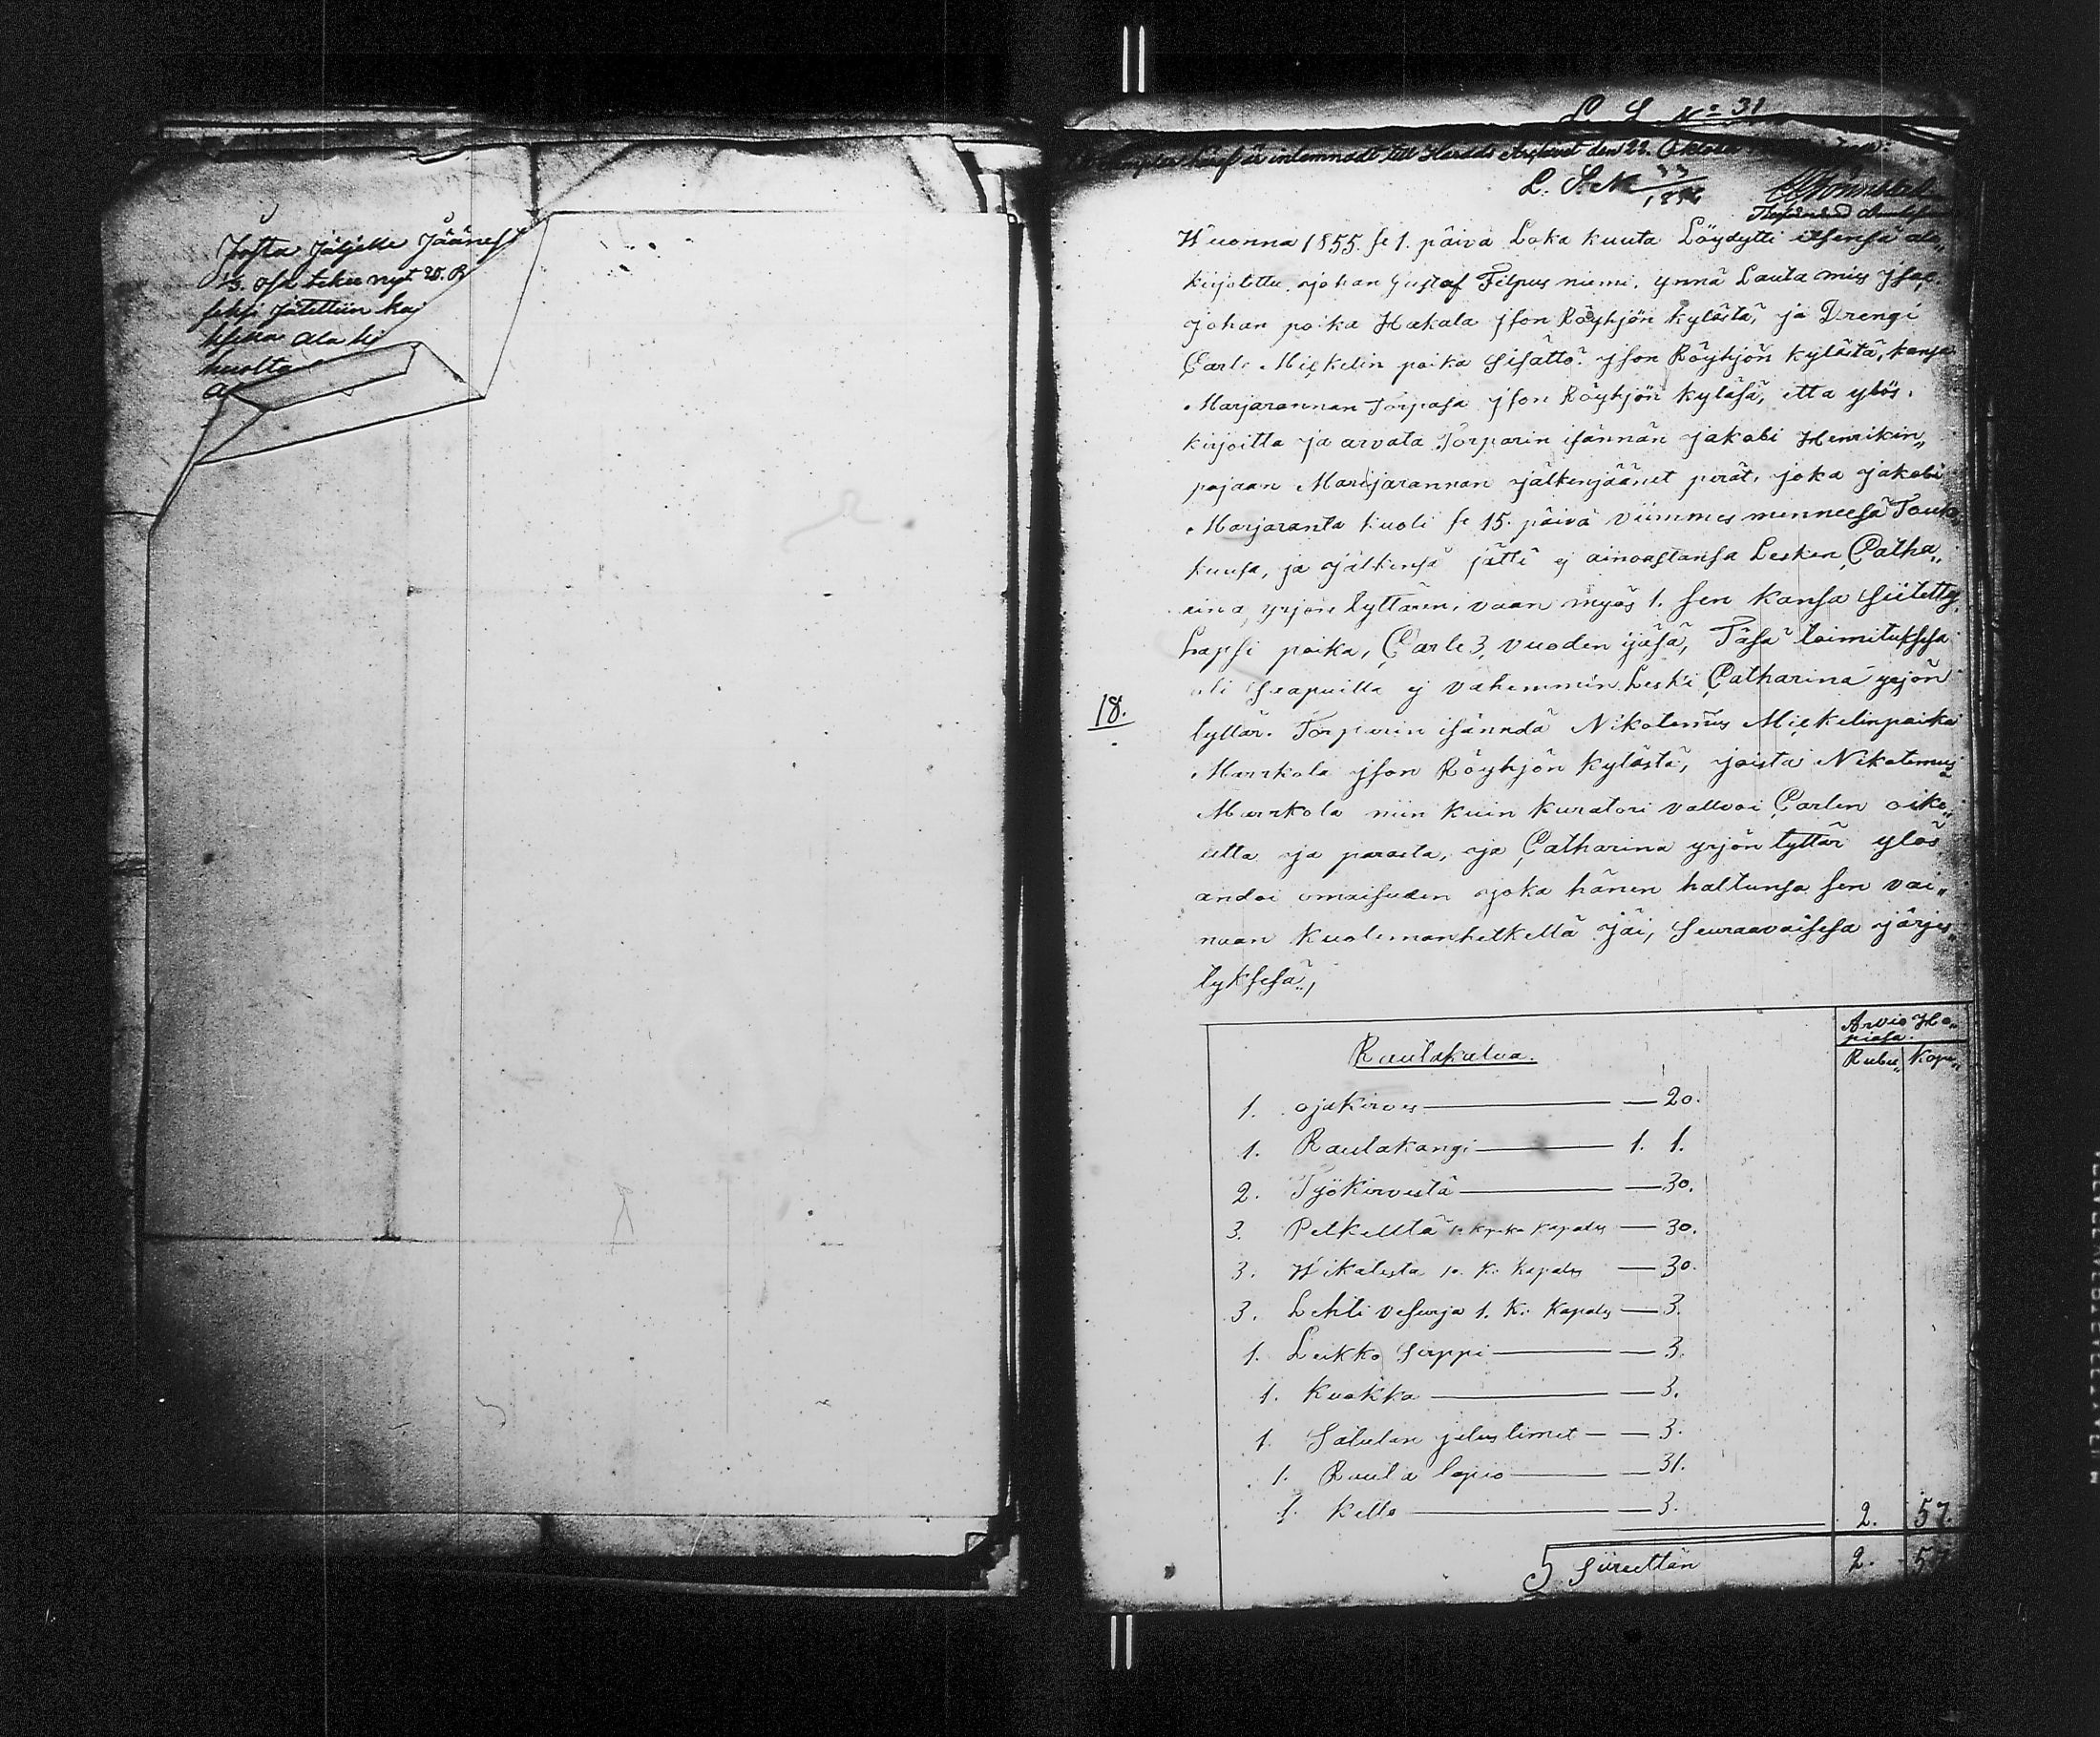 Josta Jäljelle Jäänest
1/3. osa tekee nyt 20. R
seksi Jätettiin ka
huolta
L. S. No 31
är inlemnadt till Härads Arkivet den 22. October
L. S. No 33/1856
Wuonna 1855. se 1. päivä Loka kuuta Löydytti itsensä ala„
kirjotettu. Johan Gustaf Filpus niemi. ynnä Lauta mies Isac.
Johan poika Hakala yson Röyhjön kylästä, ja Drengi
Carle Mickelin poika Sisätto yson Röyhjön kylästä, kansa
Marjarannan Torpasa yson Röyhjön kyläsä, etta ylös.
kirjoitta ja arvata Torparin isännän Jakobi Henrikin„
pojaan Marjarannan jälkenjäänet perät, joka Jakobi
Marjaranta kuoli se 15. päivä viimmes menneesä Touko„
kuusa, ja jälkensä jätti ej ainoastansa Lesken Catha„
rina, yrjön tyttären, vaan myös 1. sen kansa siitetty
Lapsi poika, Carle 3, vuoden ijäsä, Täsä toimituksesa
oli Seapuilla ej vähemmin Leski Catharina yrjön
18.
tyttär. Torparin isänndä Nikotemus Mickelinpoika
Marrkola yson Röyhjön kylästä, joista Nikotemus
Marrkola niin kuin kuratori valvoi Carlen oike„
utta ja parasta, ja Catharina yrjön tyttär ylös
andoi omaisuden joka hänen haltunsa sen vai„
naan kuolemanhetkellä jäi, Seuraavaisesa järjes„
tyksesä,
Arvio Ho„
piasa.
Rautakalua.
Rubu„ Kope„
1. ojakirves — 20.
1. Rautakangi — 1. 1.
2. Työkirvestä — 30.
3. Petkelttä 10 kpeka kapales — 30.
3. Wikatesta 10. K: kapales — 30.
3. Lehti vesurja 1. K: kapales — 3.
1. Leikko Sirppi — 3.
1. Kuokka — 3.
1. Satulan jalustimet — 3.
1. Rauta lapio — 31.
1. Kello — 3. 2. 57.
Siirettän 2. 57